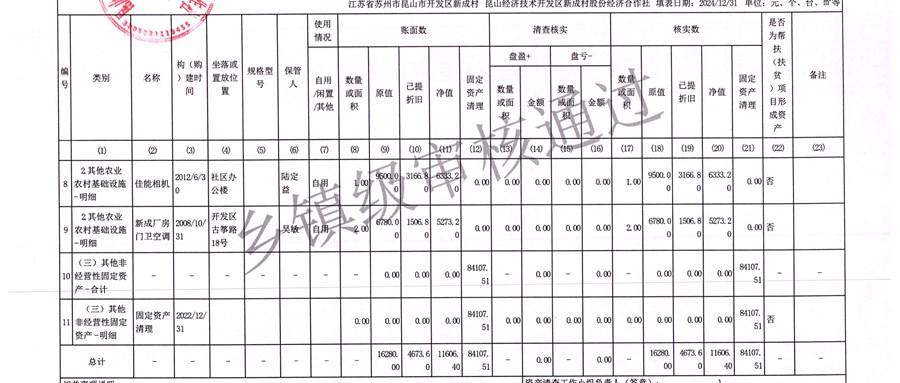 江苏省苏州市昆山市开发区新成村 昆山经济技术开发区新成村股份经济合作社 填表日期：2024/12/31 单位：元、个、台、㎡等
编号 类别 名称 构（购）建时间 坐落或置放位置 规格型号 保管人 使用情况 账面数 清查核实 核实数 是否为帮扶（扶贫）项目形成资产 备注
自用/闲置/其他 数量或面积 原值 已提折旧 净值 固定资产清理 盘盈+ 盘亏- 数量或面积 原值 已提折旧 净值 固定资产清理
数量或面积 金额 数量或面积 金额
(1) (2) (3) (4) (5) (6) (7) (8) (9) (10) (11) (12) (13) (14) (15) (16) (17) (18) (19) (20) (21) (22) (23)
8 2其他农业农村基础设施-明细 佳能相机 2012/6/30 社区办公楼 陆定益 自用 1.00 9500.00 3166.80 6333.20 0.00 0.00 0.00 0.00 0.00 1.00 9500.00 3166.80 6333.20 0.00 否
9 2其他农业农村基础设施-明细 新成厂房门卫空调 2008/10/31 开发区古筝路18号 吴敏 自用 2.00 6780.00 1506.80 5273.20 0.00 0.00 0.00 0.00 0.00 2.00 6780.00 1506.80 5273.20 0.00 否
10 （三）其他非经营性固定资产-合计 – – – – – – – 0.00 0.00 0.00 84107.51 – 0.00 – 0.00 – 0.00 0.00 0.00 84107.51 – –
11 （三）其他非经营性固定资产-明细 固定资产清理 2022/12/31 0.00 0.00 0.00 0.00 84107.51 0.00 0.00 0.00 0.00 0.00 0.00 0.00 0.00 84107.51 否
总计 – – – – – – – 16280.00 4673.60 11606.40 84107.51 – 0.00 – 0.00 – 16280.00 4673.60 11606.40 84107.51 – –
资产清查工作小组负责人（签章）：
乡镇级审核通过